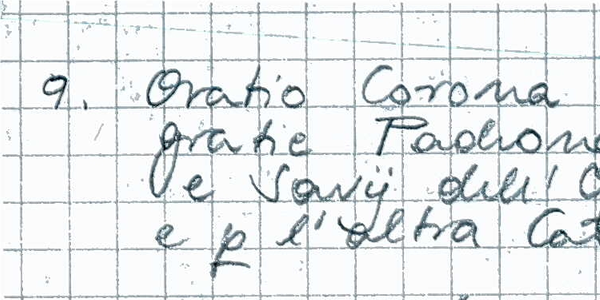 9. Oratio Corona
gratie Padrone
e Savÿ dell' C
e p l'altra Cat